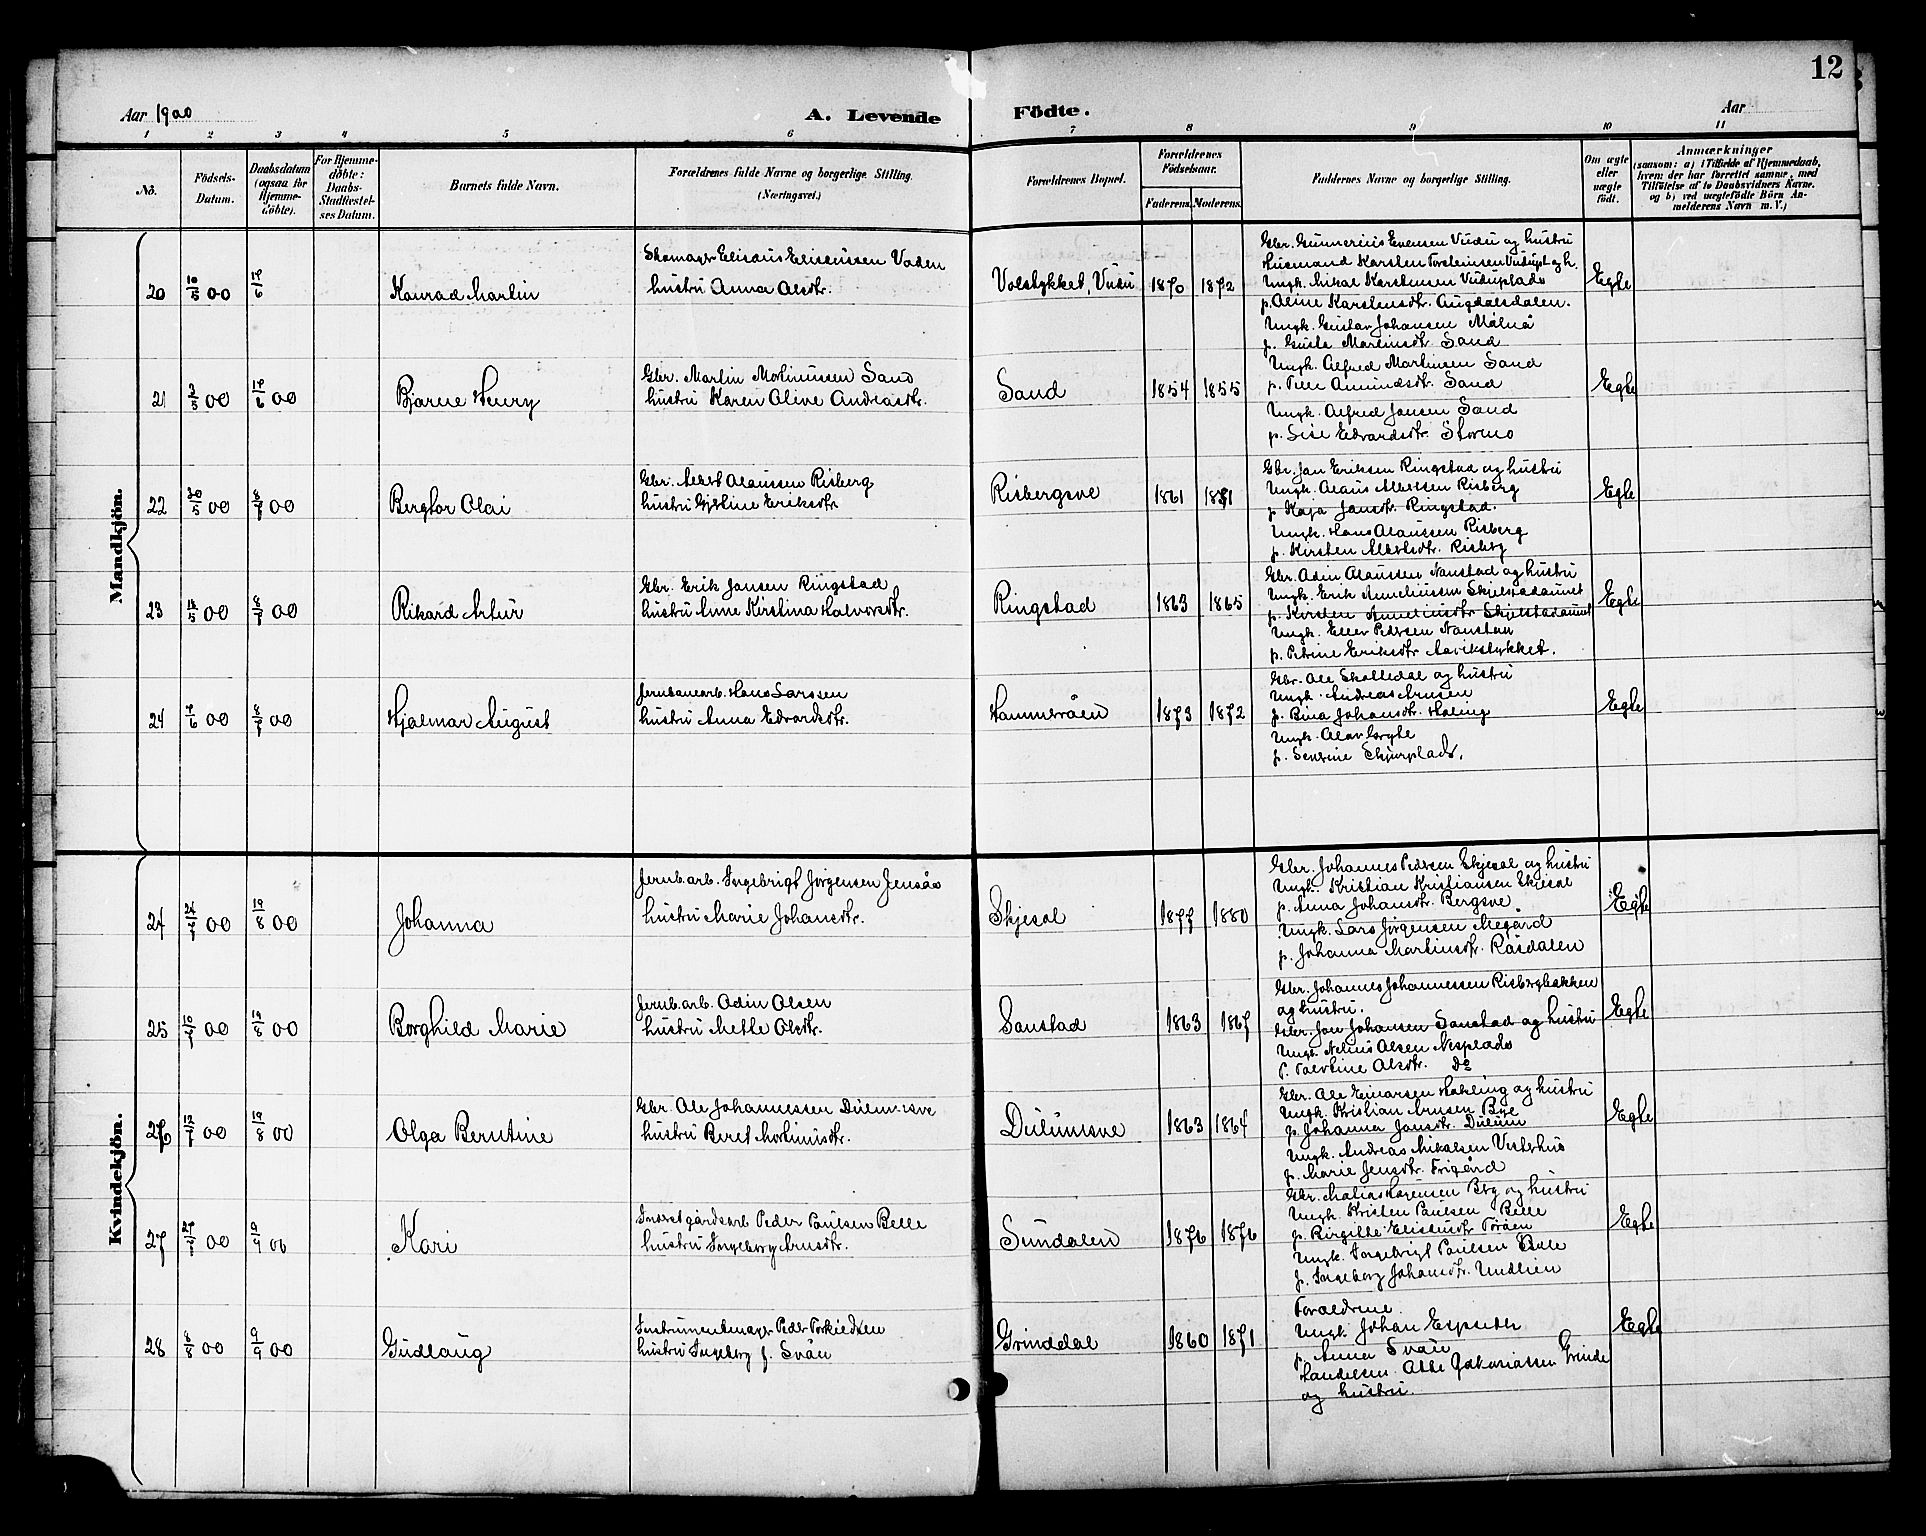 12
Aar 1900
A. Levende Födte.
Aar
1 2 3 4 5 6 7 8 9 10 11
No.
Födsels-Datum.
Daabsdatum (ogsaa for Hjemme-döbte).
For Hjemme-döbte: Daabs-Stadfæstel-ses Datum.
Barnets fulde Navn.
Forældrenes fulde Navne og borgerlige Stilling. (Næringsvei.)
Forældrenes Bopæl.
Forældrenes Födselsaar.
Faderens. Moderens.
Faddernes Navne og borgerlige Stilling.
Om ægte eller uægte födt.
Anmærkninger
(saasom: a) i Tilfælde af Hjemmedaab, hvem der har forrettet samme, med Tilföielse af to Daabsvidners Navne, og b) ved uægtefödte Börn An-melderens Navn m. V.)
Mandkjön.
20 10/5 00 17/6
Konrad Martin
Skomager Elisæus Elisæussen Vaden
hustru Anna Olsdtr.
Volstykket, Vudu
1870 1872
Gbr. Gunnerius Evensen Vudu og hustru
Husmand Karsten Torsteinsen Vuduplads og h.
Ungk. Mikal Karstensen Vuduplads
p. Oline Karstensdtr. Augdalsdalen.
Ungk. Gustav Johansen Målnå
p. Gusta Martinsdtr. Sand
Egte
21 3/5 00 17/6 00
Bjarne Henry
Gbr. Martin Mortinussen Sand
hustru Karen Oline Andreasdtr.
Sand
1854 1855
Ungk. Alfred Martinsen Sand
p. Amundsdtr. Sand
Ungk. Alfred Jansen Sand
p. Lise Edvardsdtr. Stormo
Egte
22 30/5 00 8/7 00
Bergtor Olai
Gbr. Albert Olaussen Risberg
hustru Gjertine Eriksdtr
Risbergsve
1861 1871
Gbr. Jan Eriksen Ringstad og hustru
Ungk. Olaus Albertsen Risberg
p. Kaja Jansdtr. Ringstad.
Ungk. Hans Olaussen Risberg
p. Kirsten Albertsdtr. Risberg
Egte
23 16/5 00 8/7 00
Rikard Artur
Gbr. Erik Jansen Ringstad
hustru Anne Kirstina Halvorsdtr.
Ringstad
1863 1865
Gbr. Odin Olaussen Nanstad og hustru
Ungk. Erik Anneliussen Skjelstadaunet
p. Kirsten Anneliusdtr Skjelstadaunet
Ungk. Eller Pedersen Nanstad
p. Petrine Eriksdtr Aavikstykket.
Egte
24 7/6 00 8/7 00
Hjalmar August
Jernbanearb. Hans Larssen
hustru Anna Edvardsdtr.
Hammeråen
1873 1872
Gbr. Ole Skolledal og hustru
Ungk. Andreas Arnsen
p. Bina Johansdtr. Haling
Ungk. Olav
p. Skjurplads.
Egte
Kvindekjön.
24 24/7 00 19/8 00
Johanna
Jernb.arb. Ingebrigt Jørgensen Jensås
hustru Marie Johansdtr.
Skjesol
1877 1880
Gbr. Johannes Pedersen Skjesol og hustru
Ungk. Kristian Kristiansen Skjesol
p. Anna Johansdtr. Bergsve
Ungk. Lars Jørgensen Megård
p. Johanna Martinsdtr. Råsdalen
Egte
25 10/7 00 19/8 00
Borghild Marie
Jernb.arb. Odin Olsen
hustru Mette Olsdtr.
Sanstad
1863 1867
Gbr. Johannes Johannessen Risbergbakken
og hustru.
Gbr. Jon Johansen Sanstad og hustru
Ungk. Nelius Olsen Nesplads
p. Olsdtr. Do
Egte
26 12/7 00 19/8 00
Olga Berntine
Gbr. Ole Johannessen Duumsve
hustru Beret Mortinusdtr.
Duumsve
1863 1864
Gbr. Ole Einarsen Hakling og hustru
Ungk. Kristian Arnsen Bye
p. Johanna Jansdtr. Duum
Ungk. Andreas Mikalsen Vesterhus
p. Marie Jensdtr. Frigård
Egte
27 00 9/9 00
Kari
Peder Paulsen Belle
hustru Ingeborg Arnsdtr.
Sundalen
1876 1876
Gbr. Matias Larensen Berg og hustru
Ungk. Kristen Paulsen Belle
p. Birgitte Elisæusdtr Moråen
Ungk. Ingebrigt Paulsen Belle
p. Ingeborg Johansdtr. Undlien
Egte
28 8/8 00 9/9 00
Gudlaug
Instrumentmager Peder Torkildsen
hustru Ingeborg f. Svåu
Grinddal
1860 1871
Forældrene.
Ungk. Johan Espseter
p. Anna Svåu
Handelsm. Zakariassen Grinde
og hustru.
Egte